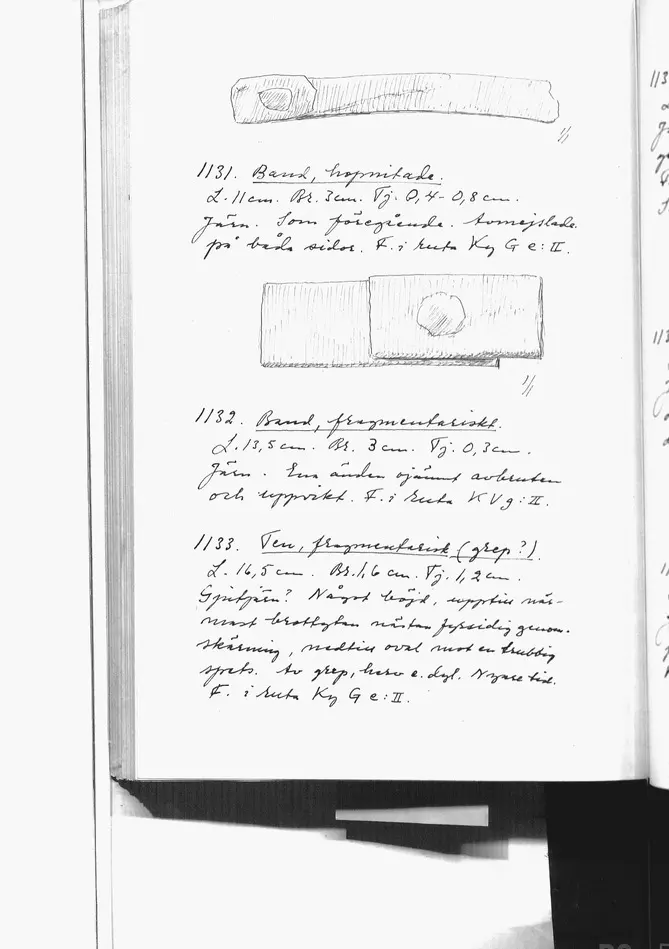 1/1
1131. Band, hopnitade.
L. 11 cm. Br. 3 cm. Tj. 0,4-0,8 cm.
Järn. Som föregående. Avmejslade
på båda sidor. F. i ruta Ky G e: II.
1/1
1132. Band, fragmentariskt.
L. 13,5 cm. Br. 3 cm. Tj. 0,3 cm.
Järn. Ena änden ojämnt avbruten
och uppvikt. F. i ruta K V g: II.
1133. Ten, fragmentarisk (grep?).
L. 16,5 cm. Br. 1,6 cm. Tj. 1,2 cm.
Gjutjärn? Något böjd, upptill när-
mast brottytan nästan fyrsidig genom-
skärning, nedtill oval mot en trubbig
spets. Av grep, harv e. dyl. Nyare tid.
F. i ruta Ky G e: II.